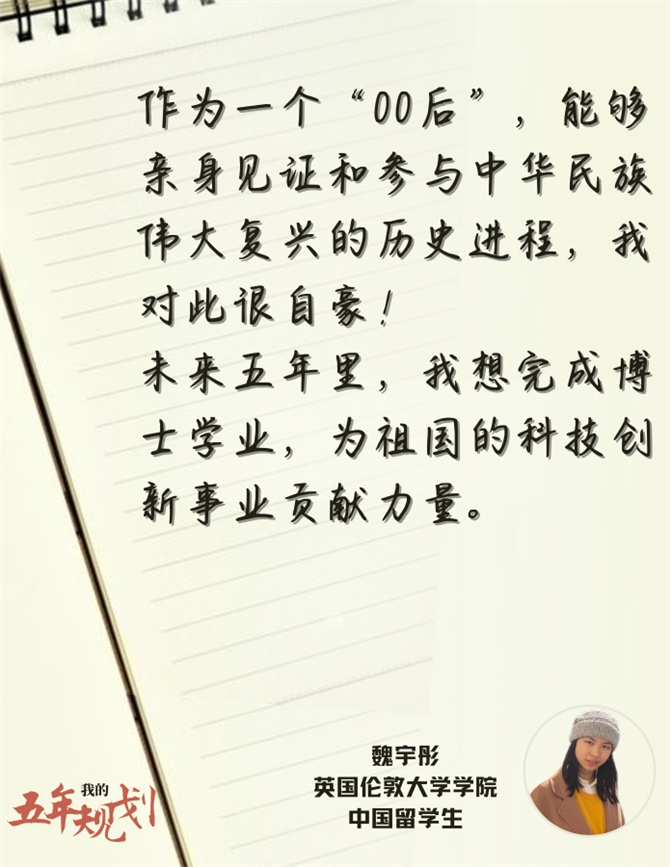 作为一个“00后”，能够
亲身见证和参与中华民族
伟大复兴的历史进程，我
对此很自豪！
未来五年里，我想完成博
士学业，为祖国的科技创
新事业贡献力量。
魏宇彤
英国伦敦大学学院
中国留学生
我的
五年规划